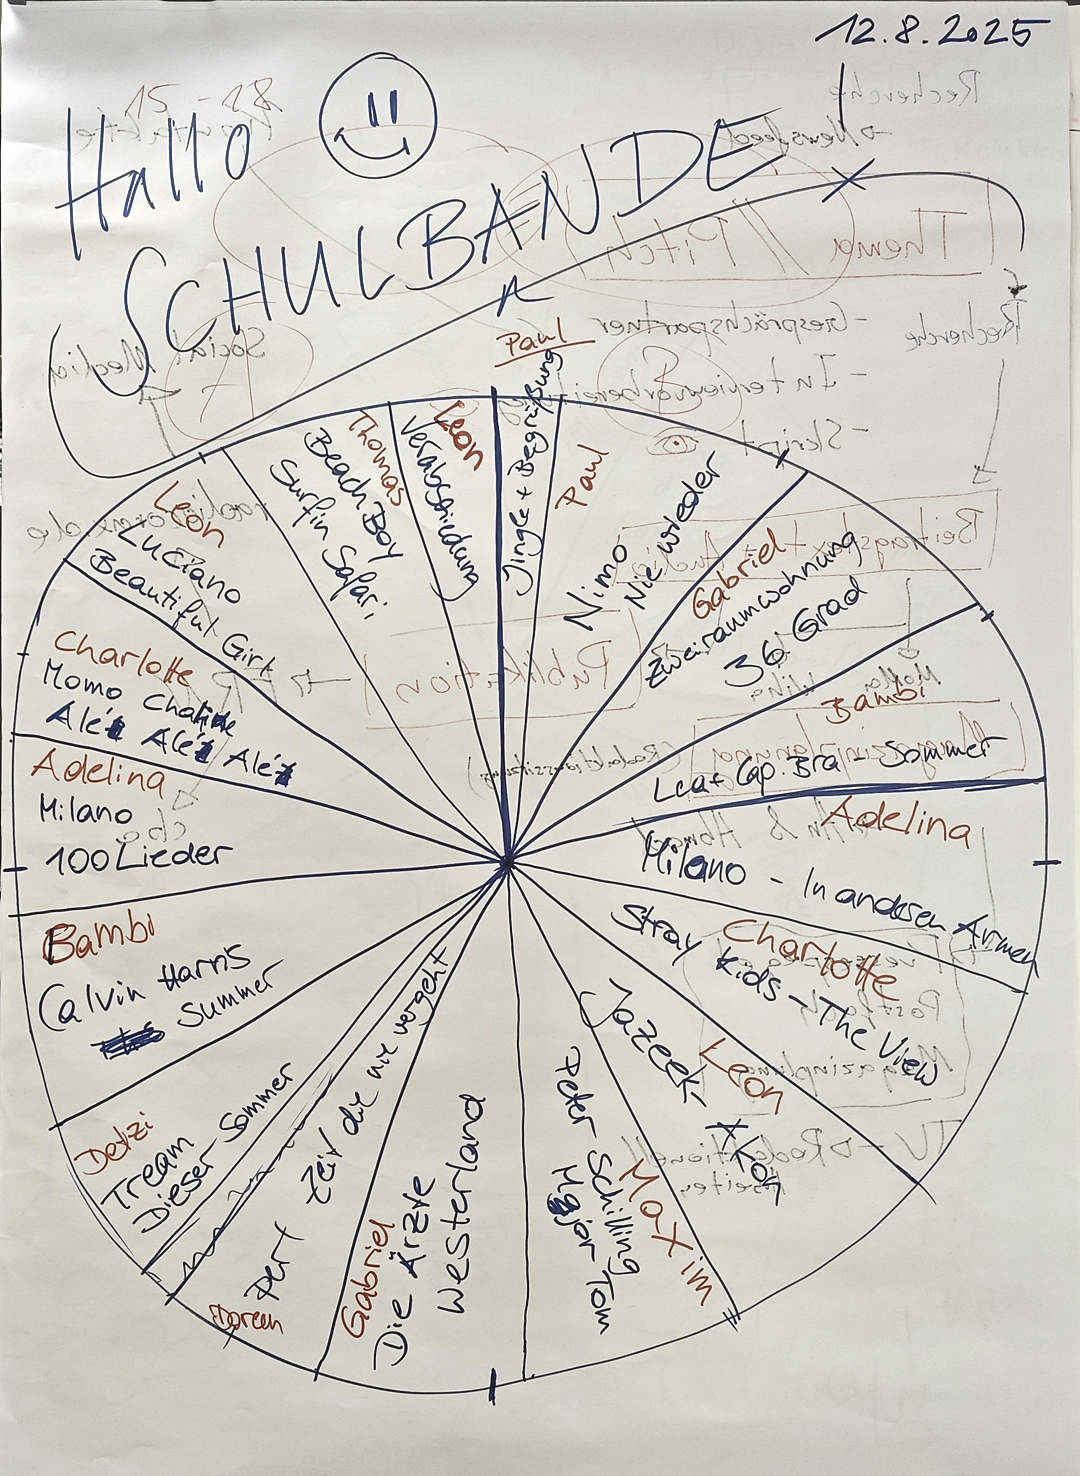 12.8.2025
Hallo
SCHULBANDE!
Paul
Jingle + Begrüßung
Paul
Nimo
Nie wieder
Gabriel
Zweiraumwohnung
36 Grad
Bambi
Lea + Cap. Bra - Sommer
Adelina
Milano - In anderen Armen
Charlotte
Stray Kids - The View
Leon
Jazeek - AKon
Maxim
Peter Schilling
Major Tom
Gabriel
Die Ärzte
Westerland
Doreen
Pert
Zeit die nie vergeht
Detzi
Tream
Dieser Sommer
Bambi
Calvin Harris
Summer
Adelina
Milano
100 Lieder
Charlotte
Momo Chahine
Alé Alé Alé
Leon
Luciano
Beautiful Girl
Thomas
Beach Boy
Surfin Safari
Leon
Verabschiedung
15 - 18
Recherche
Newsfeed
Thema // Pitch
Recherche
- Gesprächspartner
- Interviewvorbereitung
- Skript
Social Media
A
B
Beitragstext + Audio
Publikation
(Redaktionssitzung)
TV → Redaktionell